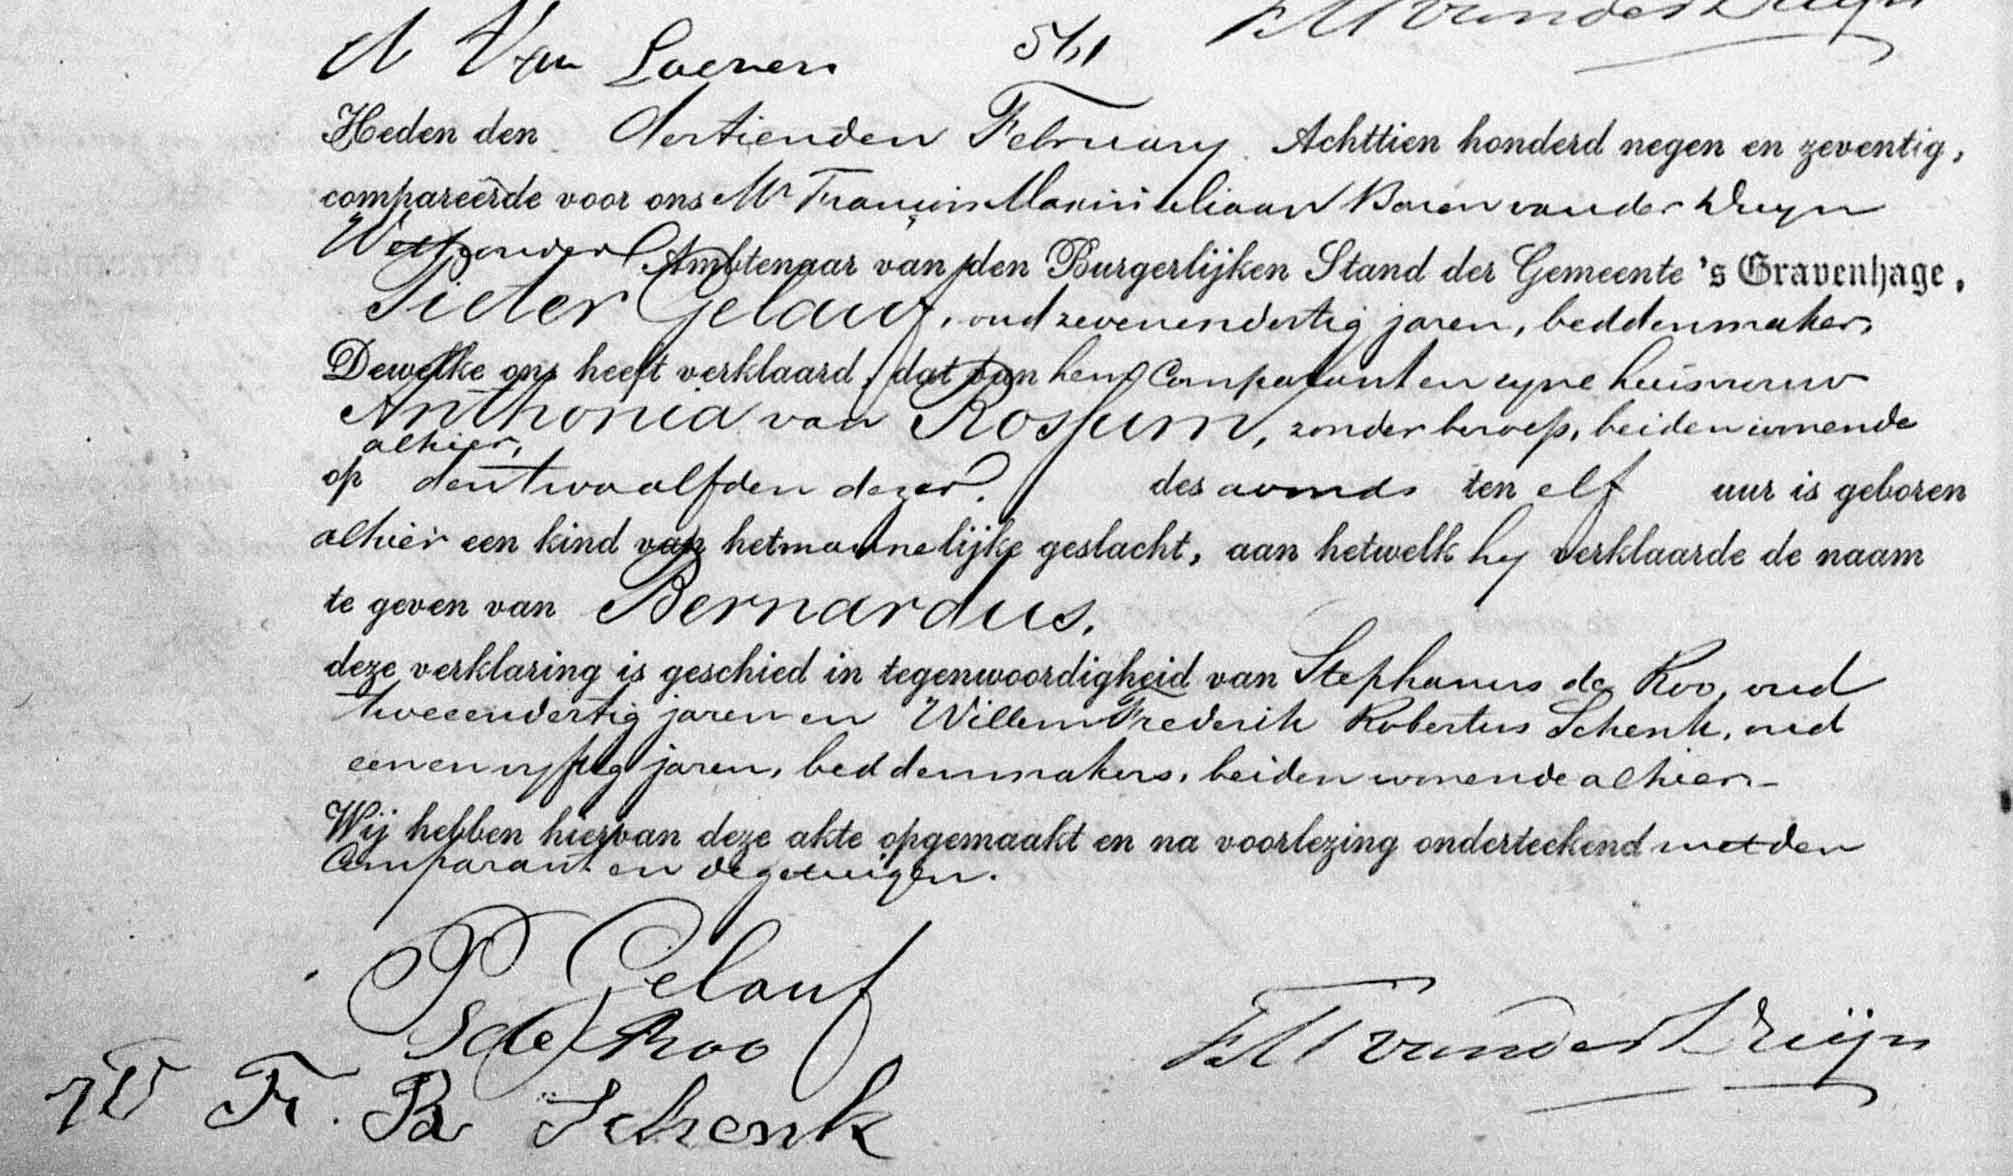 A Van Loenen
511
F M van der Duijn
Heden den dertienden February Achttien honderd negen en zeventig,
compareerde voor ons Mr Francois Maximiliaan Baron van der Duyn
Wethouder Ambtenaar van den Burgerlijken Stand der Gemeente 's Gravenhage,
Pieter Gelauf, oud zevenendertig jaren, beddenmaker,
Dewelke ons heeft verklaard, dat van hem Comparant en zyne huisvrouw
Anthonia van Rossum, zonder beroep, beiden wonende
alhier,
op den twaalfden dezer des avonds ten elf uur is geboren
alhier een kind van het mannelijke geslacht, aan hetwelk hy verklaarde de naam
te geven van Bernardus.
deze verklaring is geschied in tegenwoordigheid van Stephanus de Roo, oud
tweeendertig jaren en Willem Frederik Robertus Schenk, oud
eenenvyftig jaren, beddenmakers, beiden wonende alhier
Wij hebben hiervan deze akte opgemaakt en na voorlezing onderteekend met den
Comparant en de getuigen.
P Gelauf
S de Roo
F M van der Duijn
W Fr. R Schenk